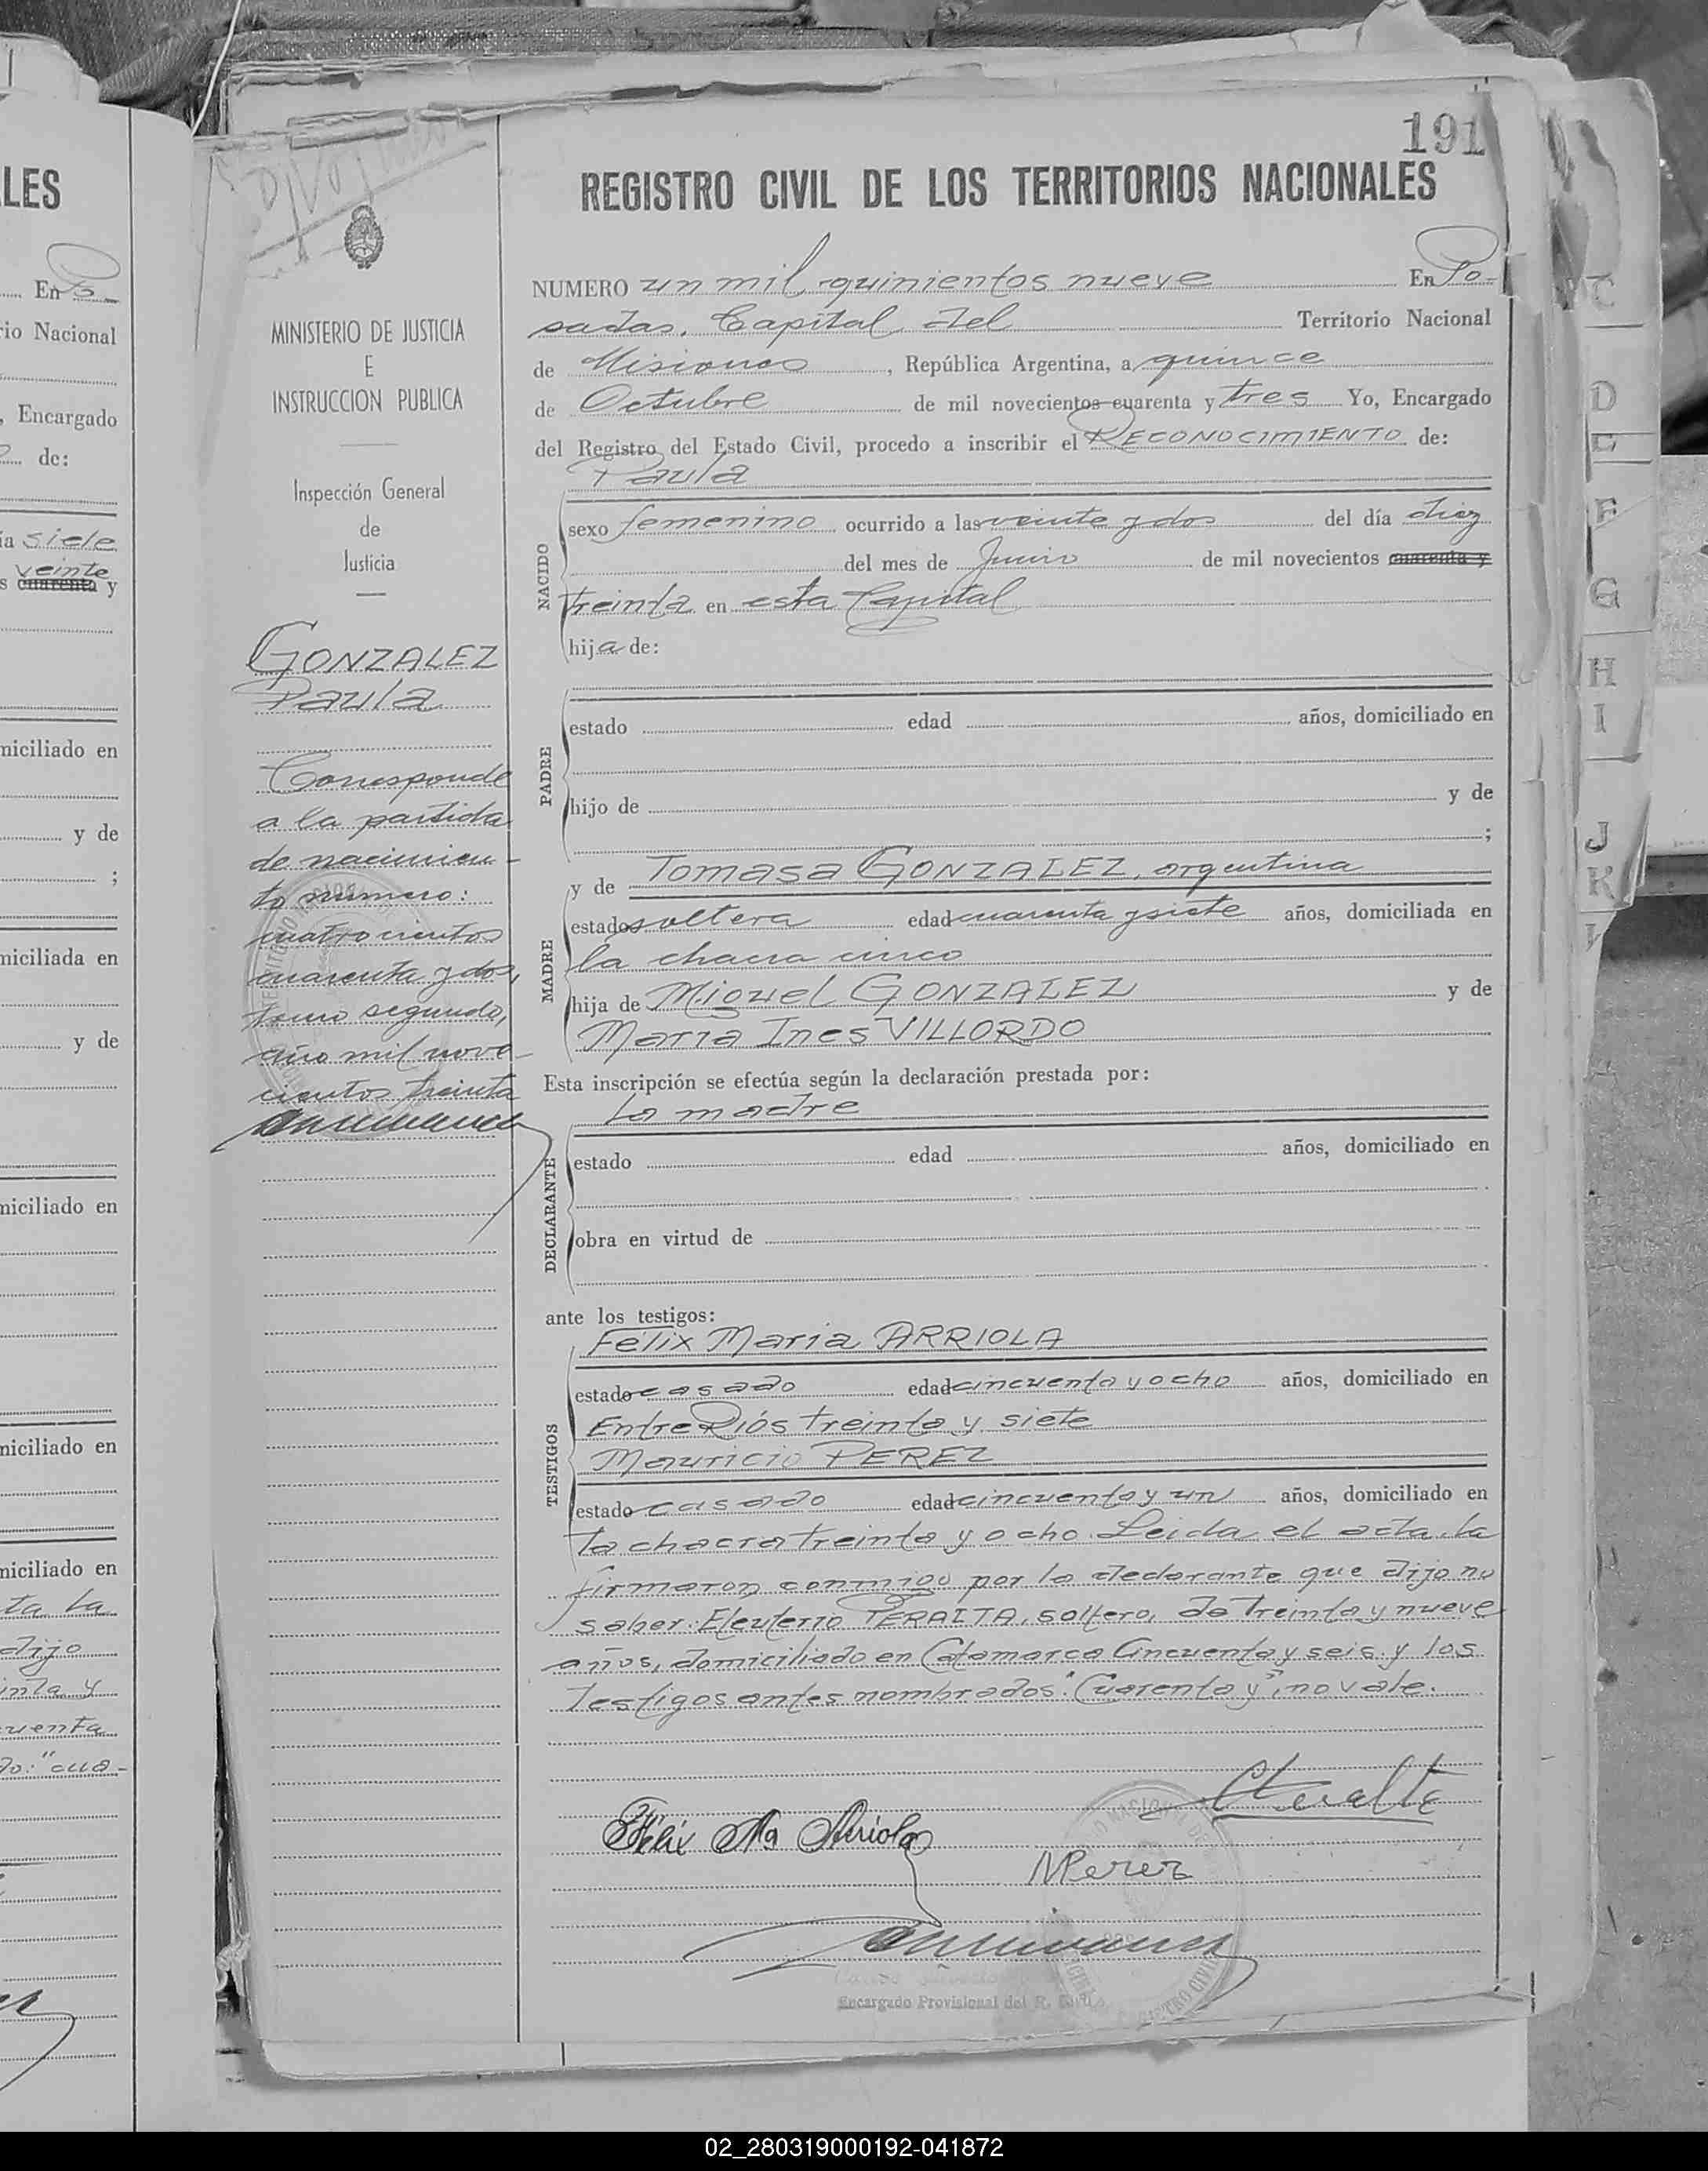 191
REGISTRO CIVIL DE LOS TERRITORIOS NACIONALES
NUMERO un mil quinientos nueve En Po-
sadas, Capital del Territorio Nacional
de Misiones, República Argentina, a quince
de Octubre de mil novecientos cuarenta y tres Yo, Encargado
del Registro del Estado Civil, procedo a inscribir el RECONOCIMIENTO de:
Paula
NACIDO
sexo femenino ocurrido a las veinte y dos del día diez
del mes de Junio de mil novecientos cuarenta y
treinta en esta Capital
hija de:
PADRE
estado edad años, domiciliado en
hijo de y de
;
MADRE
y de Tomasa GONZALEZ, argentina
estado soltera edad cuarenta y siete años, domiciliada en
la chacra cinco
hija de Miguel GONZALEZ y de
Maria Ines VILLORDO
Esta inscripción se efectúa según la declaración prestada por:
La madre
DECLARANTE
estado edad años, domiciliado en
obra en virtud de
ante los testigos:
TESTIGOS
Félix Maria ARRIOLA
estado casado edad cincuenta y ocho años, domiciliado en
Entre Ríos treinta y siete
Mauricio PEREZ
estado casado edad cincuenta y un años, domiciliado en
la chacra treinta y ocho. Leida el acta, la
firmaron conmigo por la declarante que dijo no
saber: Eleuterio PERALTA, soltero, de treinta y nueve
años, domiciliado en Catamarca Cincuenta y seis y los
testigos antes nombrados: "Cuarenta y", no vale.
Félix Ma Arriola
MPerez
Encargado Provisional del R. Civil
MINISTERIO DE JUSTICIA
E
INSTRUCCION PUBLICA
Inspección General
de
Justicia
GONZALEZ
Paula
Corresponde
a la partida
de nacimien-
to número:
cuatrocientos
cuarenta y dos,
tomo segundo,
año mil nove-
cientos treinta
LES
En
io Nacional
, Encargado
de:
siete
veinte
cuarenta y
miciliado en
y de
;
miciliada en
y de
miciliado en
miciliado en
miciliado en
ta La
dijo
inta y
uenta
do: "cua-
C
D
E
F
G
H
I
J
K
02_280319000192-041872